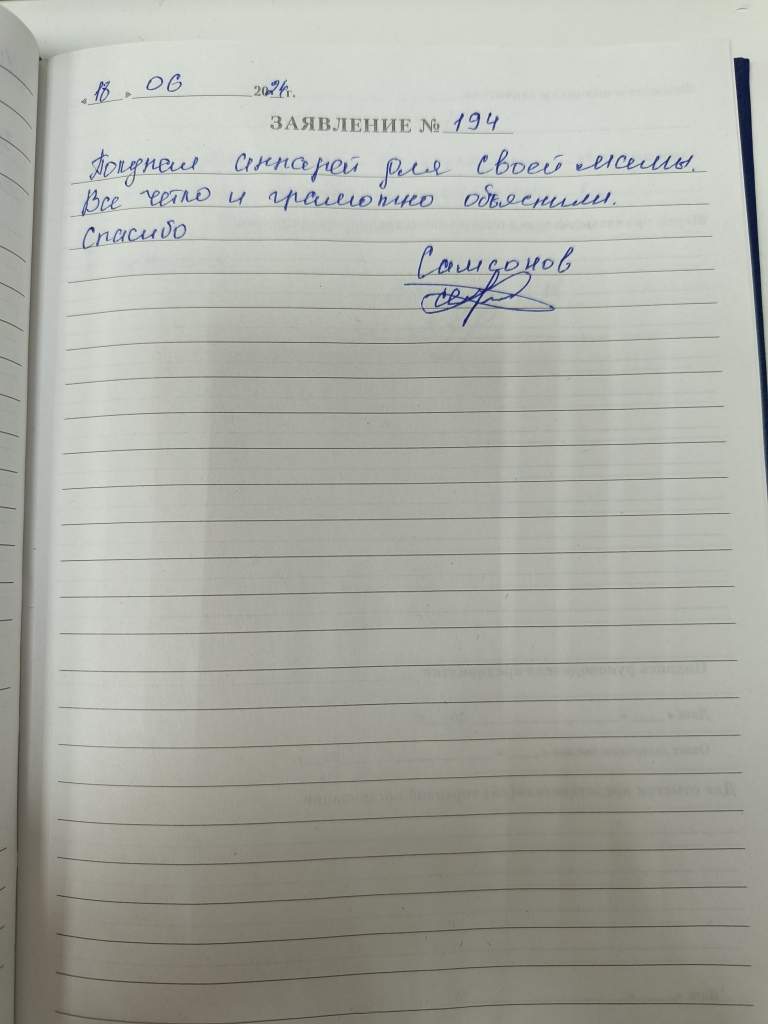 « 18 » 06 2024г.
ЗАЯВЛЕНИЕ № 194
Покупал аппарат для своей мамы.
Все четко и грамотно объяснили.
Спасибо
Самсонов